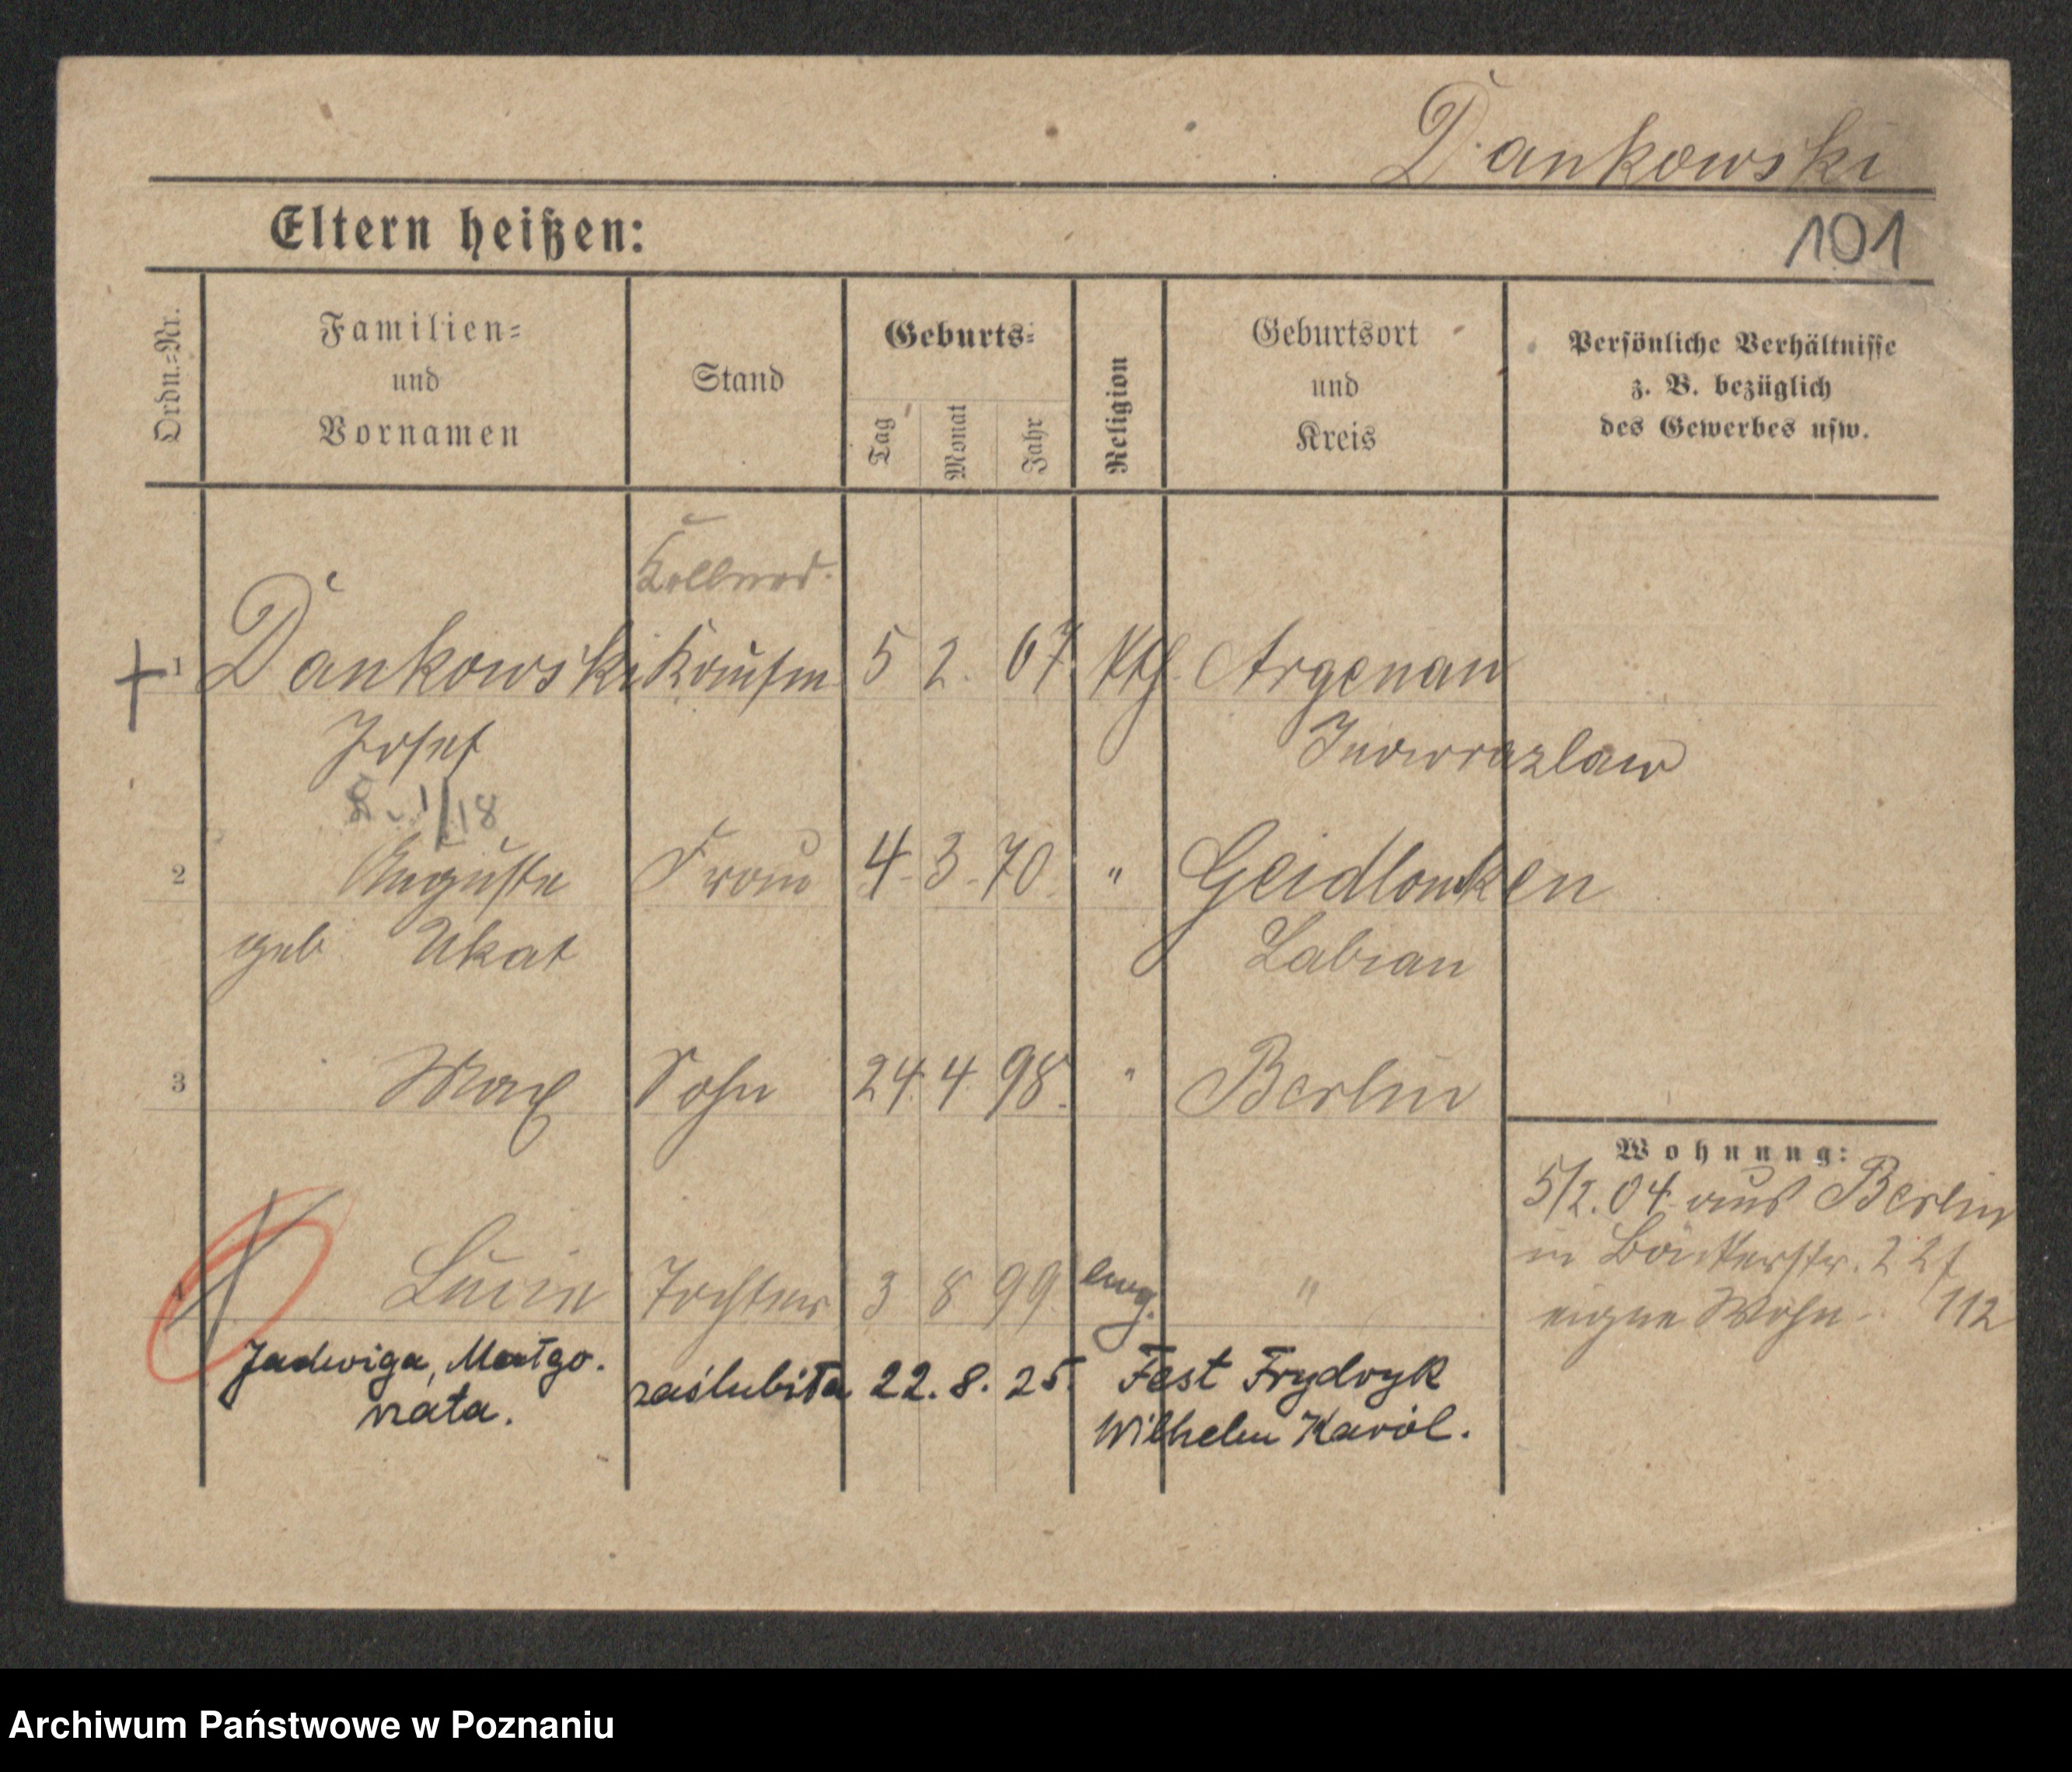 Dankowski
Eltern heißen:
101
Ordn.=Nr.
Familien=
und
Vornamen
Stand
Geburts=
Tag
Monat
Jahr
Religion
Geburtsort
und
Kreis
Persönliche Verhältnisse
z. B. bezüglich
des Gewerbes usw.
1 Dankowski Kaufm 5 2. 67. Kth. Argenau
Josef Inowrazlaw
8. 1/18
2 Auguste Frau 4. 3. 70. " Geidlauken
geb Ukat Labiau
3 Max Sohn 24. 4. 98. " Berlin
Wohnung:
5/2. 04. aus Berlin
in Bäckerstr. 22/
eigne Wohn. 112
4 Lucie Tochter 3 8 99 ewg. "
Jadwiga, Małgo-
rzata.
zaślubiła 22. 8. 25. Fest Frydryk
Wilhelm Karol.
Archiwum Państwowe w Poznaniu